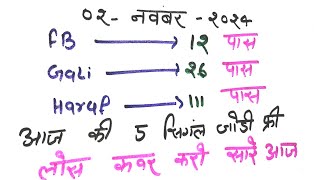 ०२- नवम्बर - २०२४
FB → 12 पास
Gali → 26 पास
Haruf → 111 पास
आज की 5 सिगंल जोडी फ्री
लोस कवर करो सारे आज